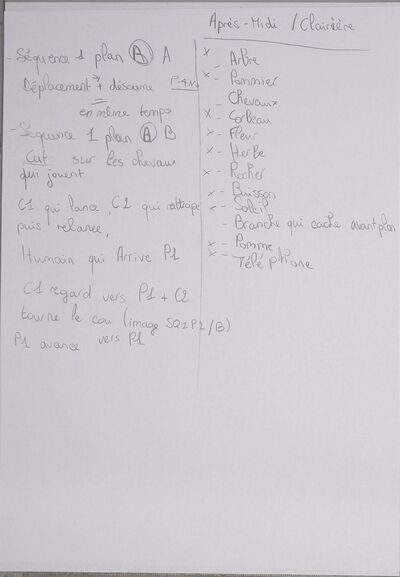 - Séquence 1 plan A A
Déplacement + dézoome
en même temps
- Séquence 1 plan A B
Cut sur les chevaux
qui jouent
C1 qui lance, C2 qui rattrape
puis relance,
Humain qui Arrive P1
C1 regard vers P1 + C2
tourne le cou (image SQ1P2/B)
P1 avance vers P1
Après-Midi / Clairière
x - Arbre
x - Pommier
- Chevaux
x - Corbeau
x - Fleur
x - Herbe
x - Rocher
x - Buisson
x - Soleil
- Branche qui cache avant plan
x - Pomme
x - Téléphone